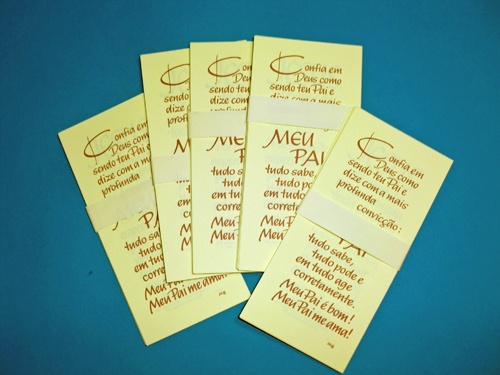 Confia em
Deus como
sendo teu Pai e
dize com a mais
profunda
PAI
tudo sabe,
tudo pode e
em tudo age
corretamente.
Meu Pai é bom!
Meu Pai me ama!
Confia em
Deus como
sendo teu
dize com
profunda
Confia em
Deus como
sendo teu Pai
dize com a m
MEU
PAI
tudo sabe
tudo po
em tud
corret
Meu P
Meu
Confia em
Deus como
sendo teu Pai e
dize com a mais
MEU
PAI
tudo sabe,
tudo pode
em tudo
corretam
Meu Pai
Meu Pa
Confia em
Deus como
sendo teu Pai e
dize com a mais
profunda
convicção:
PAI
tudo sabe,
tudo pode e
em tudo age
corretamente.
Meu Pai é bom!
Meu Pai me ama!